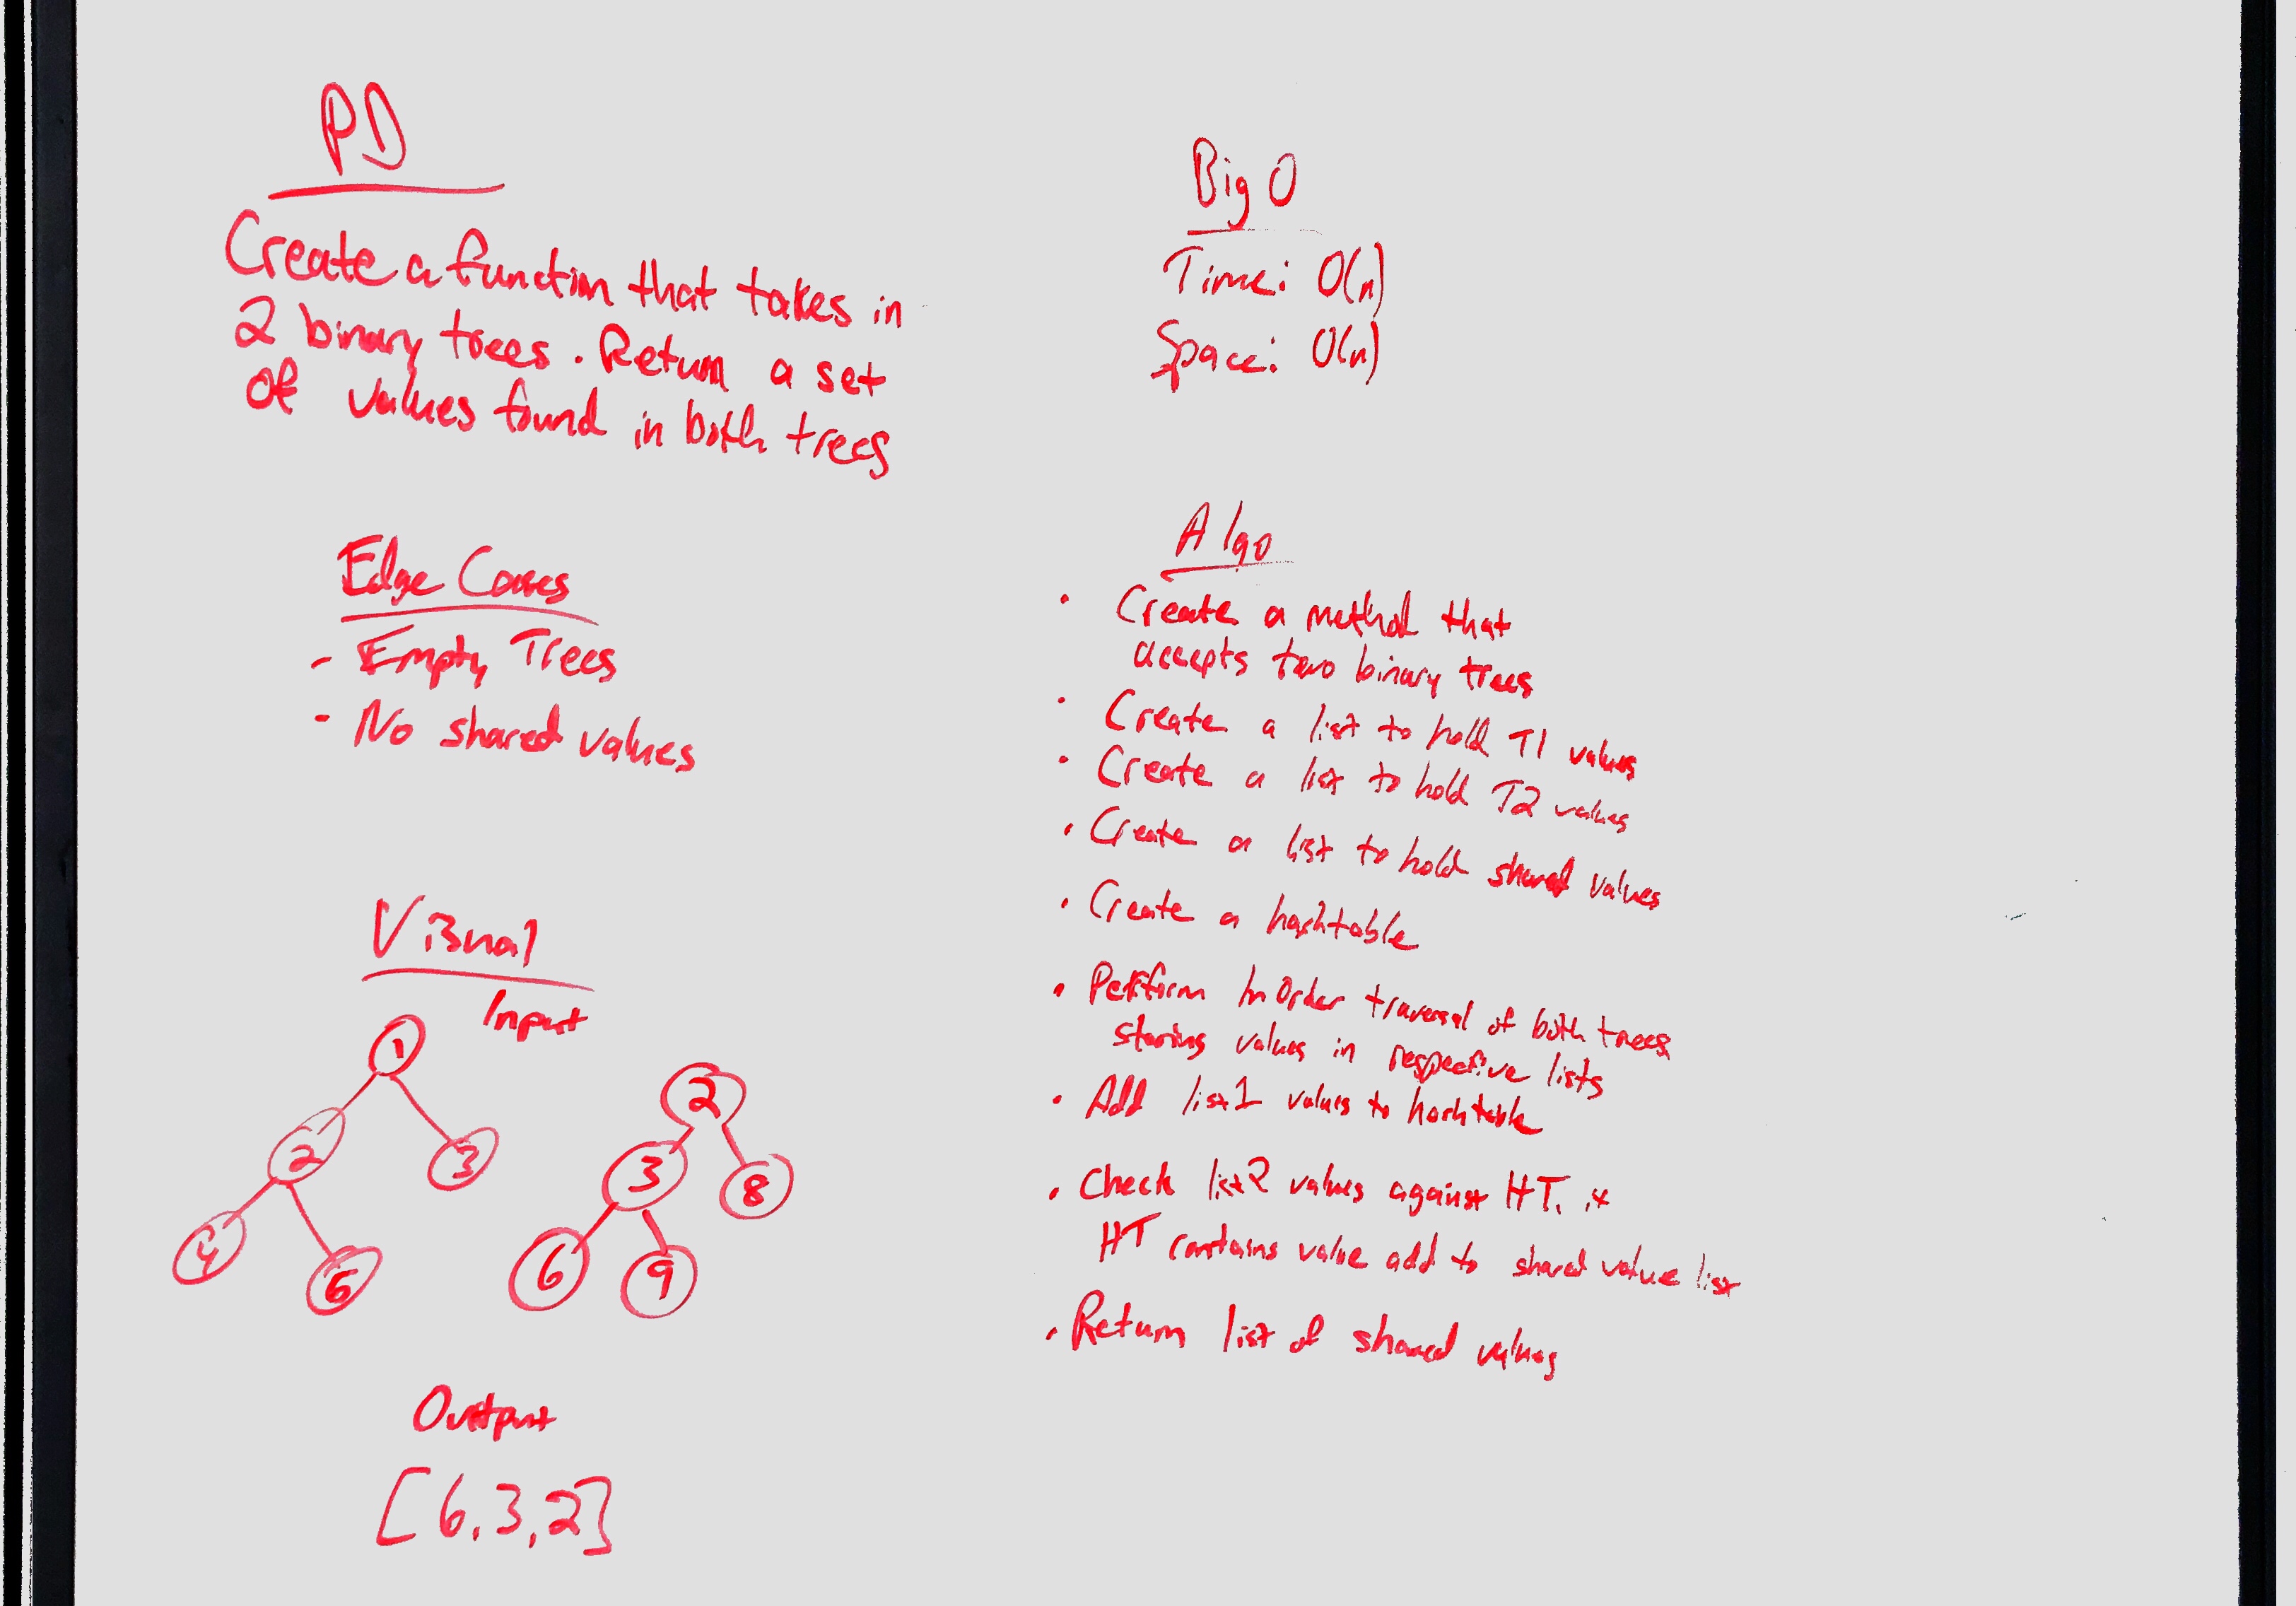 PD
Create a function that takes in
2 binary trees. Return a set
of values found in both trees
Edge Cases
- Empty Trees
- No shared values
Visual
Input
1
2
3
4
6
2
3
8
6
9
Output
[6,3,2]
Big O
Time: O(n)
Space: O(n)
Algo
• Create a method that
accepts two binary trees
• Create a list to hold T1 values
• Create a list to hold T2 values
• Create a list to hold shared values
• Create a hashtable
• Perform In Order traversal of both trees
storing values in respective lists
• Add list1 values to hashtable
• Check list2 values against HT. if
HT contains value add to shared value list
• Return list of shared values